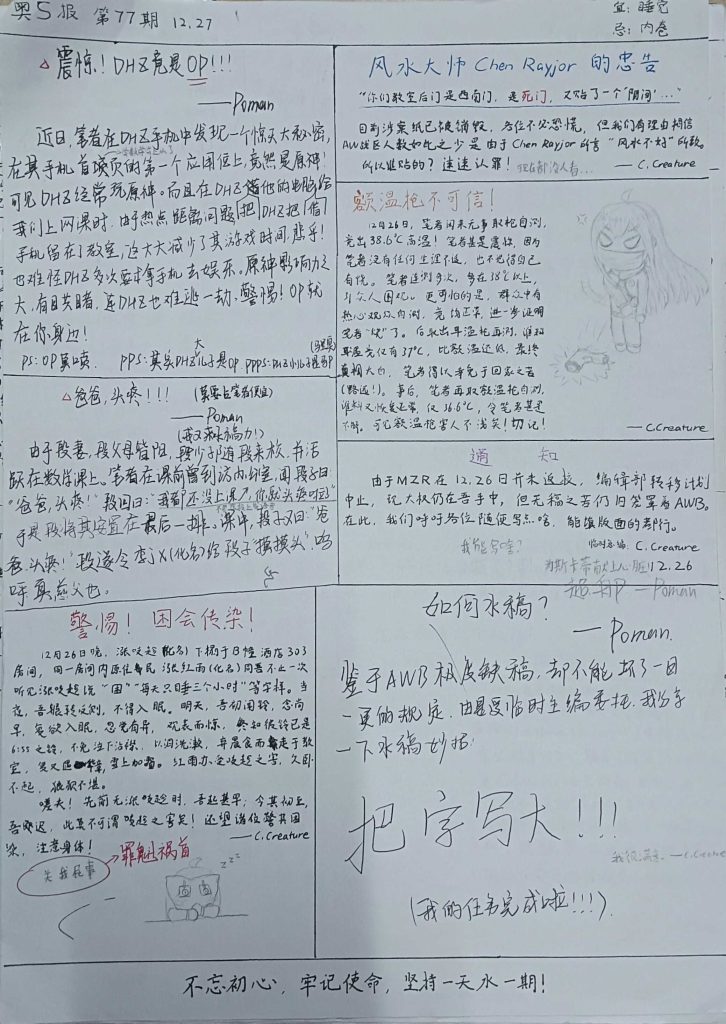 奥S报 第77期 12.27
宜：睡觉
忌：内卷
△震惊！DHZ竟是OP!!!
——Poman
近日，笔者在DHZ手机中发现一个惊天大秘密，
在其手机首项页的第一个应用位上，竟然是原神！
可见DHZ经常玩原神。而且在DHZ借他的电脑给
我们上网课时，由于热点距离问题，把DHZ把(借)
手机留在了教室，这大大减少了其游戏时间，悲乎！
也难怪DHZ多次要求拿手机去娱乐，原神影响力之
大，有目共睹，连DHZ也难逃一劫，警惕！OP就
在你身边！
PS：OP莫喷. PPS：其实DHZ大儿子是OP PPPS：DHZ小儿子是
△爸爸，头疼！！！
——Poman
由于段妻，段父母皆阳，段少子随段来校，书活
跃在数学课上。笔者在课前曾到访内办室，闻段子曰：
“爸爸，头疼！”段回曰：“我都还没上课，你就头疼啦”
于是段将其安置在最后一排。课中，段子又曰：“爸
爸头疼！”段遂令李JX(化名)给段子“摸摸头”，呜
呼真慈父也。
警惕！困会传染！
12月26日晚，涨咬超(化名)下榻于B幢酒店303
房间，同一房间内原住民涨红雨(化名)同志不止一次
听见涨咬超说“困”“每天只睡三个小时”等字样。当
夜，吾辗转反侧，不得入眠。明天，吾初闻铃，念尚
早，复欲入眠，忽觉有异，观表而惊，
6:55之铃，不免泣下沾襟，以泪洗漱，弃晨食而走于教
室，
不起，狼狈不堪。
嗟夫！先前无涨咬超时，吾起甚早；今其初至，
吾贪迟，此莫不可谓咬超之害矣！还望诸位警其困
染，注意身体！ ——C.Creature
关我屁事
→罪魁祸首
zzz
风水大师 Chen Rayjor 的忠告
“你们教室后门是西南门，是死门，又贴了一个‘阴间’...”
目前涉案纸已被销毁，各位不必恐慌，但我们有理由相信
AW战区人数如此之少是由于Chen Rayjor所言“风水不好”所致。
所以谁贴的？速速认罪！ ——C.Creature
额温枪不可信！
12月26日，笔者闲来无事取枪自测，
竟出38.6℃高温！笔者甚是震惊，因为
笔者没有任何主诉不适，也不觉得自己
有烧。笔者连测多次，多在38℃以上，
引众人围观。更可怕的是，群众中有
热心观众自测，竟均正常，进一步证明
笔者“烧”了。后取出耳温枪再测，谁知
耳温竟仅有37℃，比额温还低，最终
真相大白，笔者得以幸免于回家之苦
(路远！)。事后，笔者再取额温枪自测，
谁料又恢复正常，仅36.6℃，令笔者甚是
不解。可见额温枪害人不浅矣！切记！
——C.Creature
通 知
由于MZR在12.26日并未返校，编辑部转移计划
中止，现大权仍在吾手中，但无稿之苦仍旧笼罩着AWB。
在此，我们呼吁各位随便写点啥，能填版面的都行。
我能写啥？ 临时主编 C.Creature
为斯卡蒂献上心脏！12.26
——Poman
如何水稿？
——Poman.
鉴于AWB极度缺稿，却不能坏了一日
一更的规定，由是受临时主编委托，我分享
一下水稿妙招：
把字写大！！！
我很满意。——C.Creature
(我的任务完成啦!!!).
不忘初心，牢记使命，坚持一天水一期！